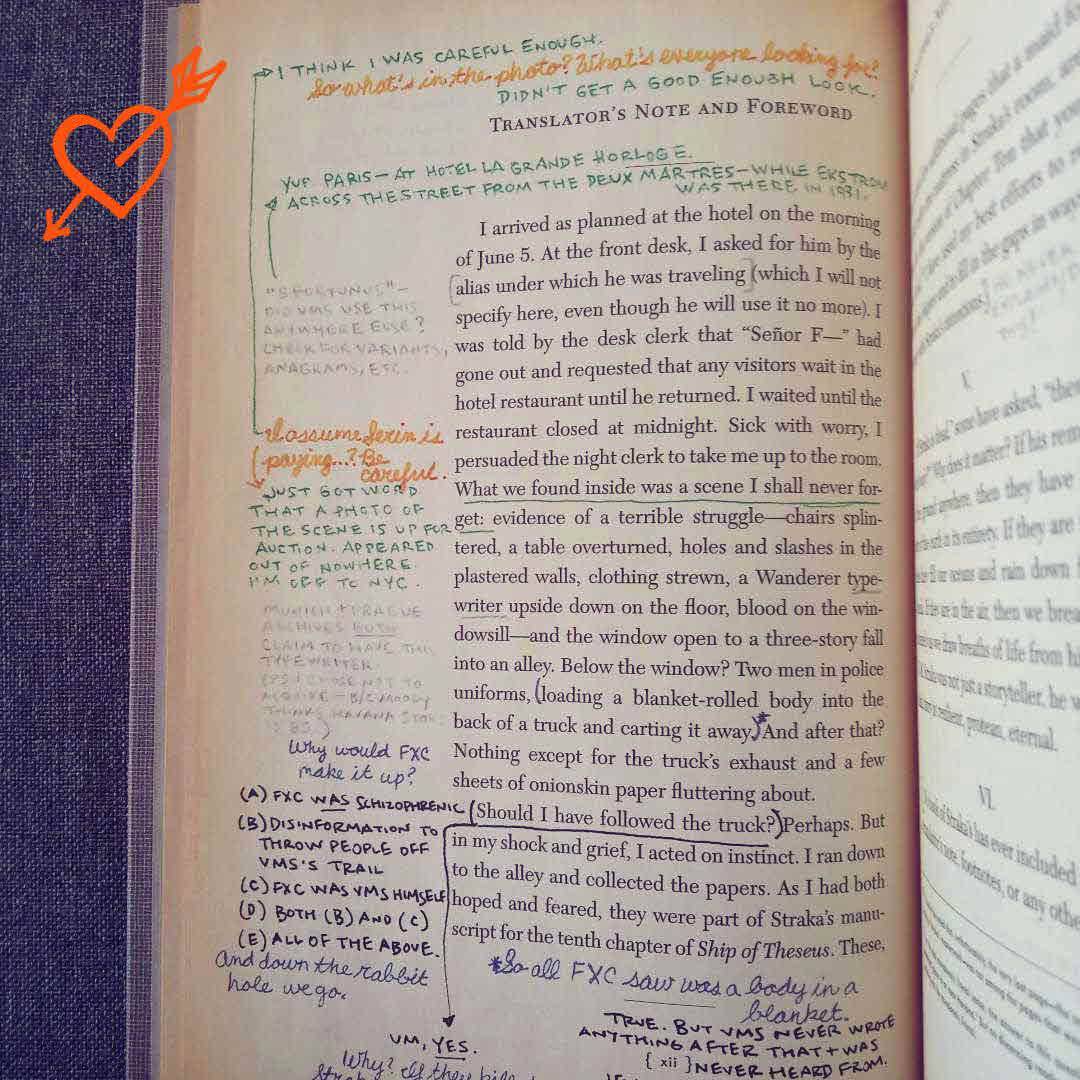 I THINK I WAS CAREFUL ENOUGH.
So what's in the photo? What's everyone looking for?
DIDN'T GET A GOOD ENOUGH LOOK.
TRANSLATOR'S NOTE AND FOREWORD
YUP. PARIS—AT HOTEL LA GRANDE HORLOGE.
ACROSS THE STREET FROM THE DEUX MARTRES—WHILE EKSTROM
WAS THERE IN 1931.
I arrived as planned at the hotel on the morning
of June 5. At the front desk, I asked for him by the
alias under which he was traveling (which I will not
specify here, even though he will use it no more). I
was told by the desk clerk that “Señor F—” had
gone out and requested that any visitors wait in the
hotel restaurant until he returned. I waited until the
restaurant closed at midnight. Sick with worry, I
persuaded the night clerk to take me up to the room.
What we found inside was a scene I shall never for-
get: evidence of a terrible struggle—chairs splin-
tered, a table overturned, holes and slashes in the
plastered walls, clothing strewn, a Wanderer type-
writer upside down on the floor, blood on the win-
dowsill—and the window open to a three-story fall
into an alley. Below the window? Two men in police
uniforms, loading a blanket-rolled body into the
back of a truck and carting it away. And after that?
Nothing except for the truck's exhaust and a few
sheets of onionskin paper fluttering about.
Should I have followed the truck? Perhaps. But
in my shock and grief, I acted on instinct. I ran down
to the alley and collected the papers. As I had both
hoped and feared, they were part of Straka's manu-
script for the tenth chapter of Ship of Theseus. These,
DID VMS USE THIS
ANYWHERE ELSE?
CHECK FOR VARIANTS,
ANAGRAMS, ETC.
I assume Serin is
paying...? Be
careful.
JUST GOT WORD
THAT A PHOTO OF
THE SCENE IS UP FOR
AUCTION. APPEARED
OUT OF NOWHERE.
I'M OFF TO NYC.
MUNICH + PRAGUE
ARCHIVES BOTH
CLAIM TO HAVE THIS
TYPEWRITER.
Why would FXC
make it up?
(A) FXC WAS SCHIZOPHRENIC
(B) DISINFORMATION TO
THROW PEOPLE OFF
VMS'S TRAIL
(C) FXC WAS VMS HIMSELF
(D) BOTH (B) AND (C)
(E) ALL OF THE ABOVE.
And down the rabbit
hole we go.
*So all FXC saw was a body in a
blanket.
TRUE. BUT VMS NEVER WROTE
ANYTHING AFTER THAT + WAS
NEVER HEARD FROM.
UM, YES.
Why? If they
{ xii }
V.
VI.